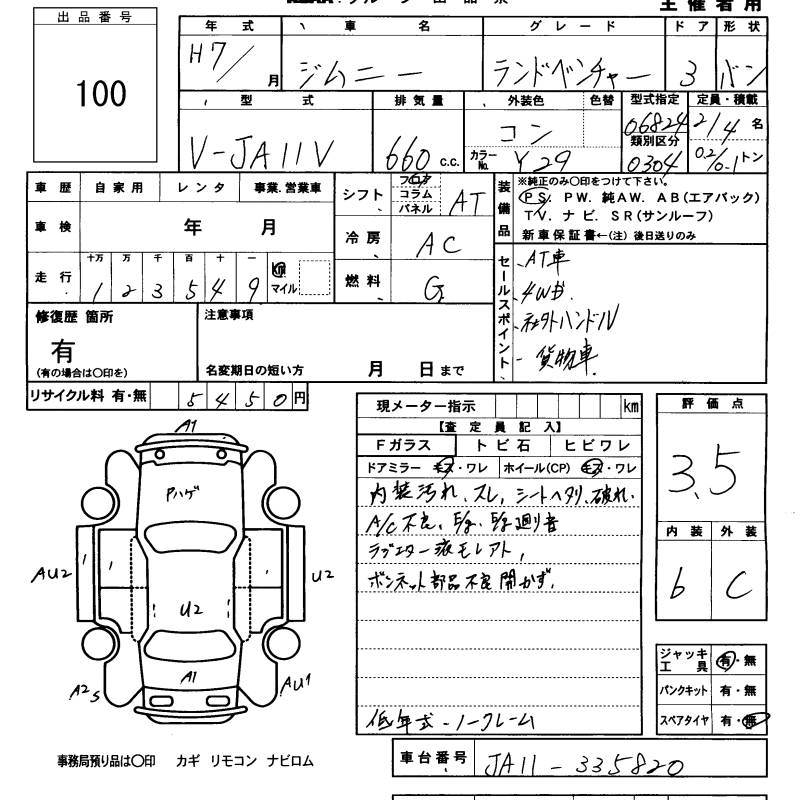 主催者用
出品番号
100
年式 車名 グレード ドア 形状
H7/ 月 ジムニー ランドベンチャー 3 バン
型式 排気量 外装色 色替 型式指定 定員・積載
V-JA11V 660 c.c. コン 06824 2/4 名
カラーNo. Y29 類別区分 0304 トン
車歴 自家用 レンタ 事業.営業車
シフト フロア コラム パネル AT
車検 年 月
冷房 AC
走行 十万 万 千 百 十 一
1 2 3 5 4 9 km マイル
燃料 G
装備品 ※純正のみ〇印をつけて下さい。
PS. PW. 純AW. AB(エアバック)
TV. ナビ. SR(サンルーフ)
新車保証書←(注) 後日送りのみ
セールスポイント
AT車
4WD
社外ハンドル
貨物車
修復歴 箇所
有
(有の場合は〇印を)
注意事項
名変期日の短い方 月 日まで
リサイクル料 有・無 5450円
現メーター指示 km
【査定員記入】
Fガラス トビ石 ヒビワレ
ドアミラー キズ・ワレ ホイール(CP) キズ・ワレ
内装汚れ、スレ、シートヘタリ、破れ、
A/C不良、E/g、E/g廻り音
ラジエター液モレアト、
ボンネット部品不良開かず、
低年式・ノークレーム
評価点
3.5
内装 外装
b C
ジャッキ工具 有・無
パンクキット 有・無
スペアタイヤ 有・無
A1
Pハゲ
AU2
U2
U2
A1
A2S
AU1
事務局預り品は〇印 カギ リモコン ナビロム
車台番号 JA11-335820